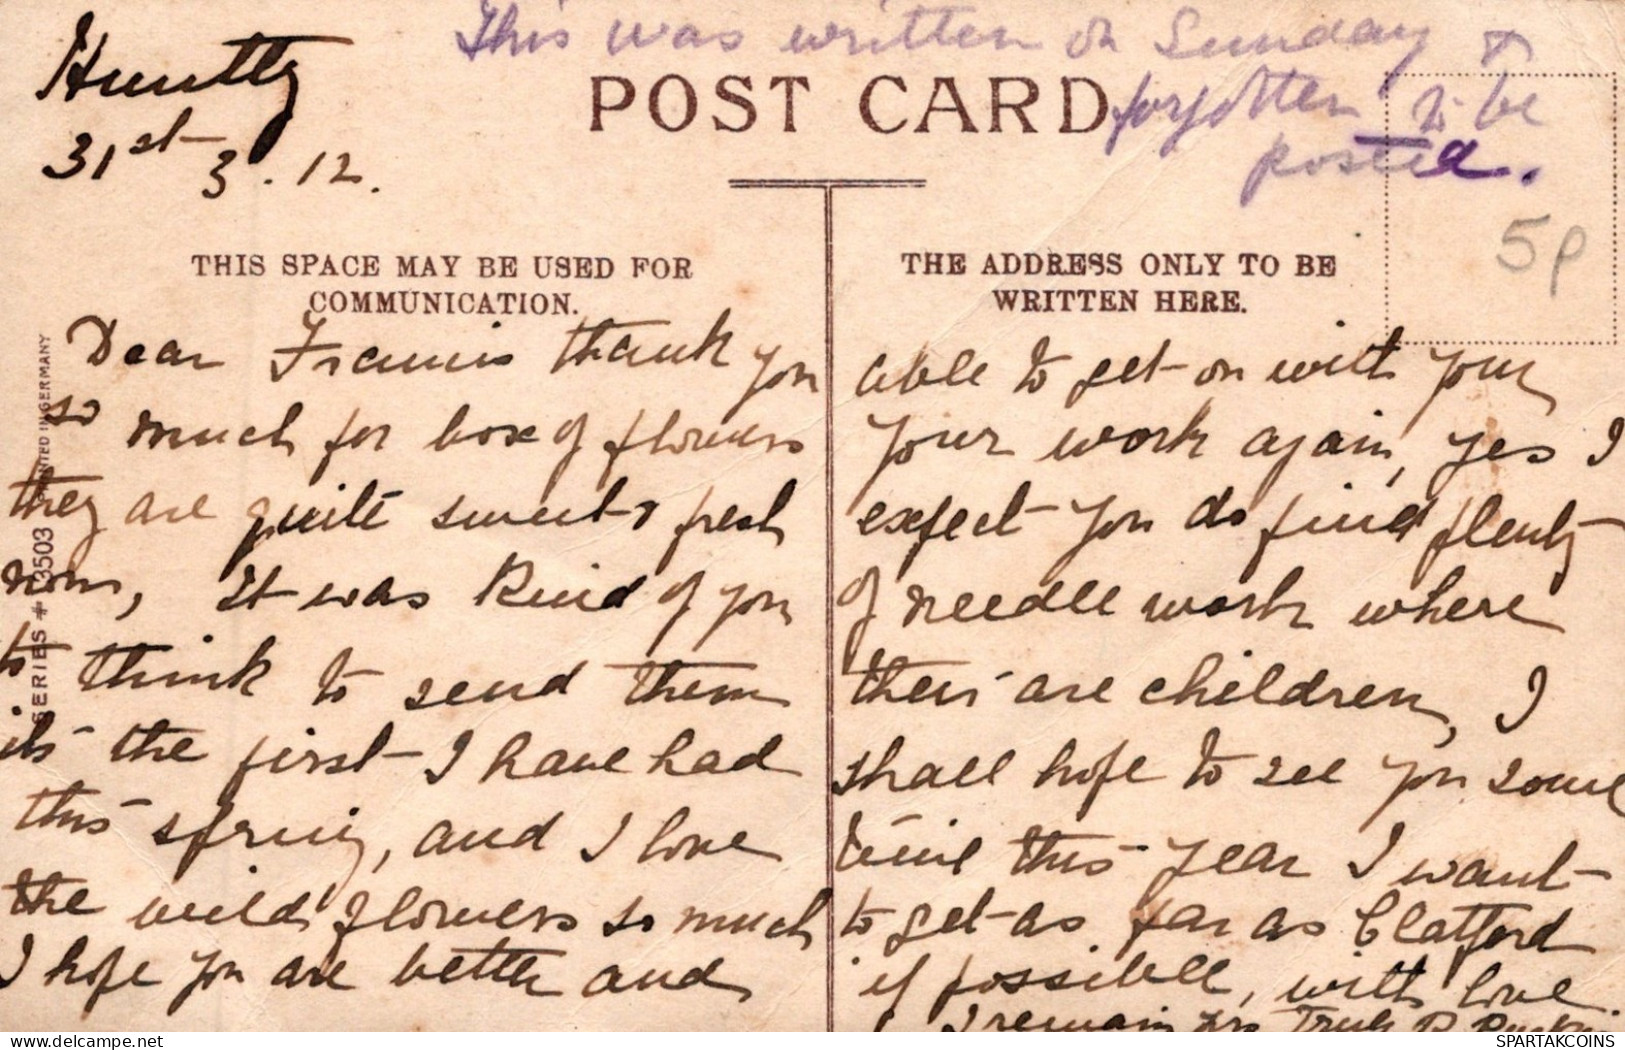 This was written on Sunday &
forgotten to be
posted.
Huntly
31st 3. 12.
POST CARD
5p
THIS SPACE MAY BE USED FOR
COMMUNICATION.
THE ADDRESS ONLY TO BE
WRITTEN HERE.
SERIES 13503 PRINTED IN GERMANY
Dear Francis thank you
so much for box of flowers
they are quite sweet & fresh
now, It was kind of you
to think to send them
its the first I have had
this spring, and I love
the wild flowers so much
I hope you are better and
able to get on with your
your work again, yes I
expect you do find plenty
of needle work where
their are children, I
shall hope to see you some
time this year I want
to get as far as Clatford
if possible, with love
I remain yrs Truly
SPARTAKCOINS